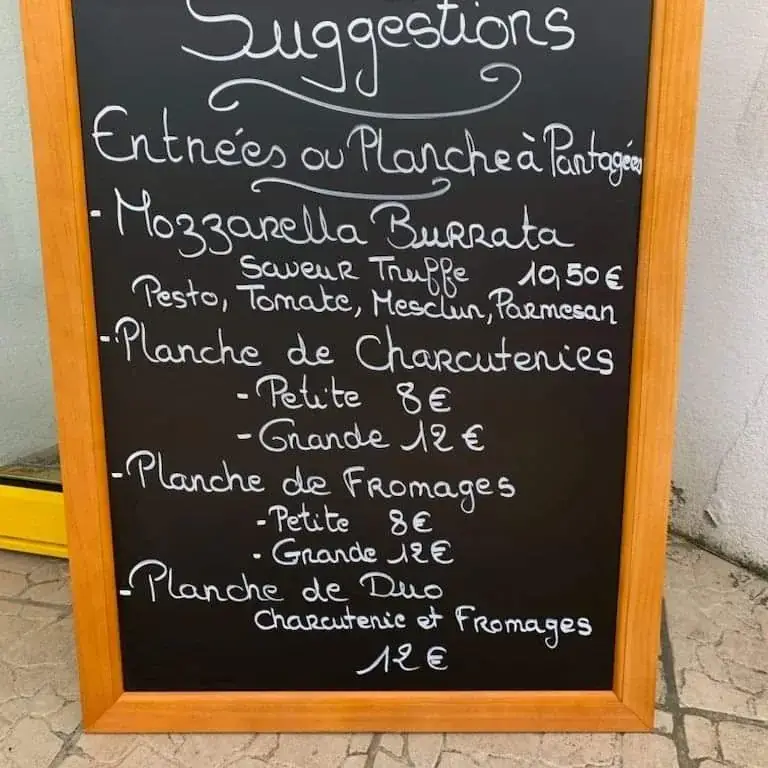 Suggestions
Entrées ou Planche à Partagées
- Mozzarella Burrata
Saveur Truffe 10,50 €
Pesto, Tomate, Mesclun, Parmesan
- Planche de Charcuteries
- Petite 8 €
- Grande 12 €
- Planche de Fromages
- Petite 8 €
- Grande 12 €
- Planche de Duo
Charcuterie et Fromages
12 €